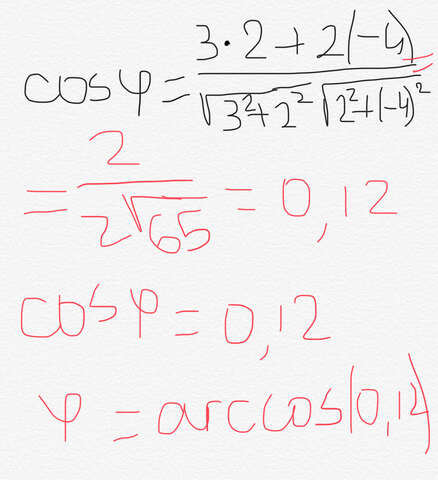 cosφ = \frac{3·2+2(-4)}{\sqrt{3²+2²} \sqrt{2²+(-4)²}} =
= \frac{2}{2\sqrt{65}} = 0,12
cosφ = 0,12
φ = arccos(0,12)